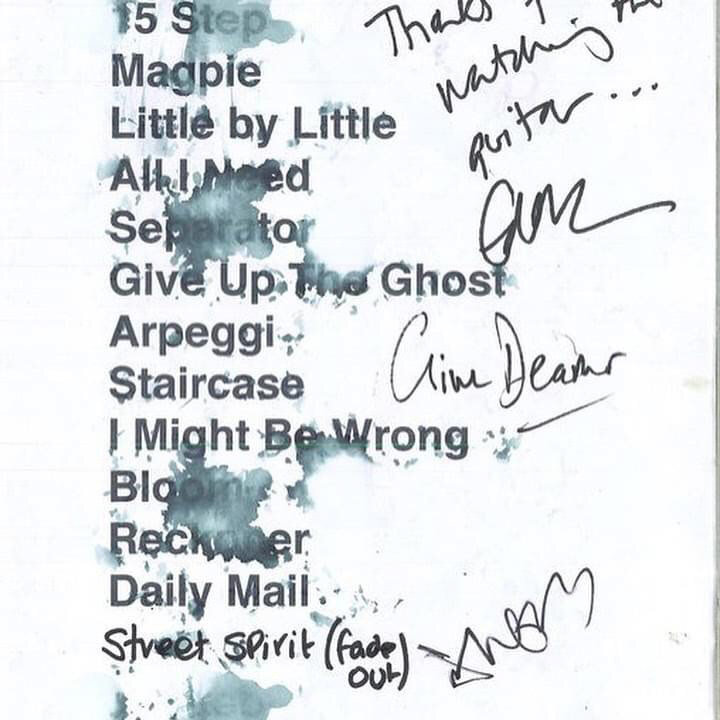 15 Step
Thanks
watching the
Magpie
guitar...
Little by Little
All I Need
Separator
Give Up The Ghost
Arpeggi
Clive Deamer
Staircase
I Might Be Wrong
Bloom
Reckoner
Daily Mail
Street Spirit (fade
out)